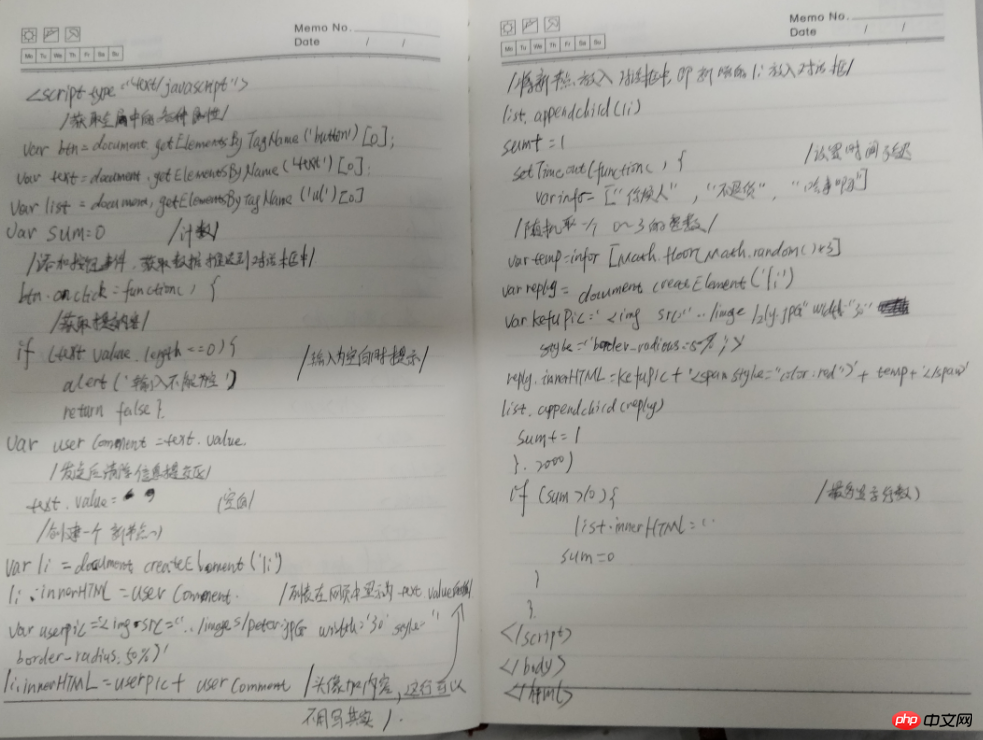 Memo No.
Date / /
Mo Tu We Th Fr Sa Su
<script type="text/javascript">
/获取全局中的各种属性/
var btn=document.getElementsByTagName('button')[0];
var text=document.getElementsByName('text')[0];
var list=document.getElementsByTagName('ul')[0]
var sum=0 /计数/
/添加按钮事件,获取数据推送到对话框中/
btn.onclick=function() {
/获取提交内容/
if (text.value.length==0){ /输入为空向时提示/
alert('输入不能为空')
return false}.
var userComment=text.value.
/发送后清除信息提交区/
text.value='' (空白/
/创建一个新节点/
var li=document.createElement('li')
li.innerHTML=userComment. /列表在网页中显示为 text.value
var userpic='<img src="../images/peter.jpg width='30' style="
border-radius:50%>'
li.innerHTML=userpic+userComment /头像和内容,这行可以
不用写其实/.
Memo No.
Date / /
Mo Tu We Th Fr Sa Su
/将新节点放入对话框中,即新的li放入对话框/
list.appendchild(li)
sum+=1
setTimeout(function() { /设置时间延迟
var infor=["你烦人","不退货","啥事啊"]
/随机取一个0~3的整数/
var temp=infor[Math.floor(Math.random()*3]
var reply=document.createElement('li')
var kefupic='<img src="../image/zly.jpg" width="30"
style='border-radious=50%;'>
reply.innerHTML=kefupic+'<span style="color:red">'+temp+'</span>'
list.appendchild(reply)
sum+=1
}.2000)
if (sum>10){ /最多显示行数)
list.innerHTML=''
sum=0
}
}.
</script>
</body>
</html>
php 中文网